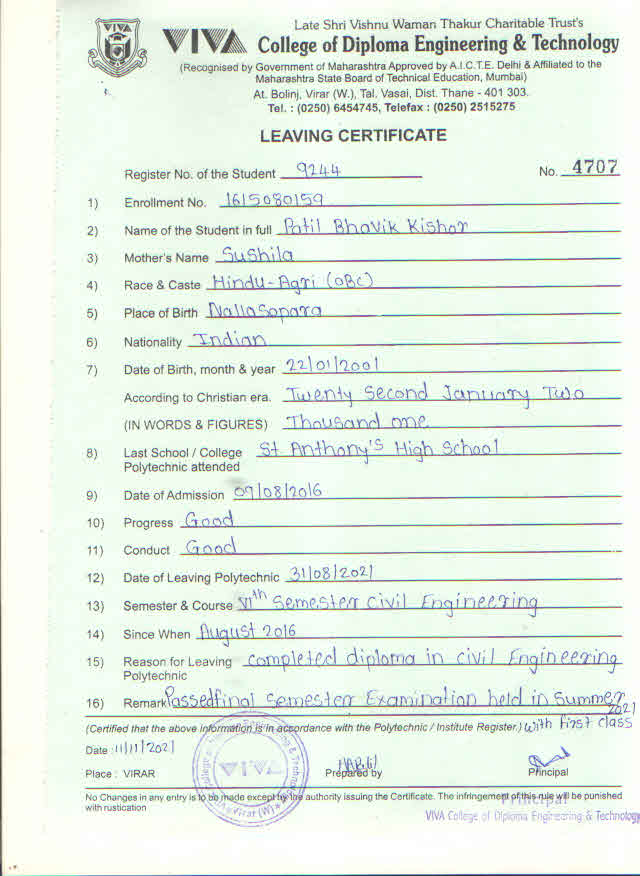 Late Shri Vishnu Waman Thakur Charitable Trust's
VIVA College of Diploma Engineering & Technology
(Recognised by Government of Maharashtra Approved by A.I.C.T.E. Delhi & Affiliated to the
Maharashtra State Board of Technical Education, Mumbai)
At. Bolinj, Virar (W.), Tal. Vasai, Dist. Thane - 401 303.
Tel. : (0250) 6454745, Telefax : (0250) 2515275
LEAVING CERTIFICATE
Register No. of the Student 9244 No. 4707
1) Enrollment No. 1615080159
2) Name of the Student in full Patil Bhavik Kishor
3) Mother's Name Sushila
4) Race & Caste Hindu-Agri (OBC)
5) Place of Birth Nallasopara
6) Nationality Indian
7) Date of Birth, month & year 22/01/2001
According to Christian era. Twenty Second January Two
(IN WORDS & FIGURES) Thousand one
8) Last School / College St. Anthony's High School
Polytechnic attended
9) Date of Admission 09/08/2016
10) Progress Good
11) Conduct Good
12) Date of Leaving Polytechnic 31/08/2021
13) Semester & Course VIth Semester Civil Engineering
14) Since When August 2016
15) Reason for Leaving completed diploma in civil Engineering
Polytechnic
16) Remark Passed final semester Examination held in Summer
2021
(Certified that the above information is in accordance with the Polytechnic / Institute Register.) with First class
Date 11/11/2021
VIVA
Virar (W)
Place : VIRAR Prepared by Principal
No Changes in any entry is to be made except by the authority issuing the Certificate. The infringement of this rule will be punished
with rustication
Principal
VIVA College of Diploma Engineering & Technology